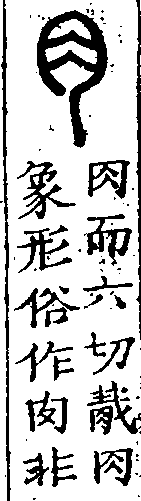 肉而六切胾肉
象形俗作非